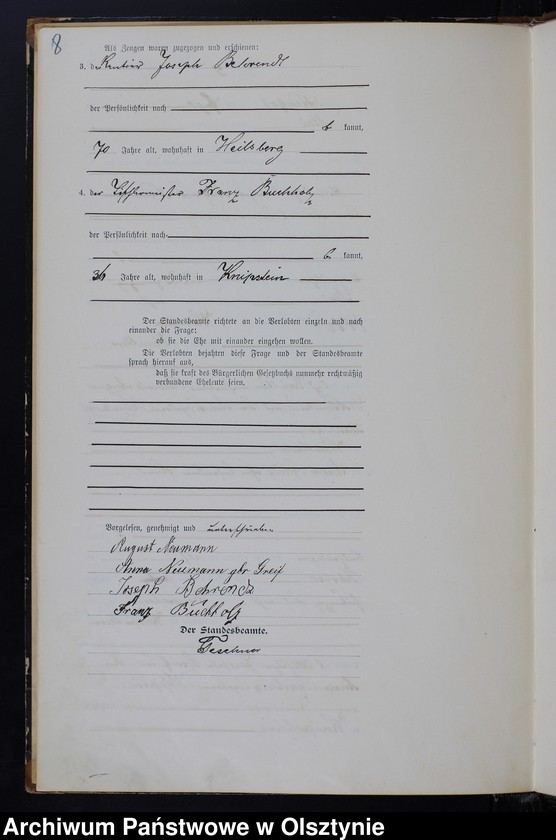 8
Als Zeugen waren zugezogen und erschienen:
3. der Rentier Joseph Behrendt
der Persönlichkeit nach
be kannt,
70 Jahre alt, wohnhaft in Heilsberg
4. der Tischlermeister Franz Buchholz
der Persönlichkeit nach
be kannt,
36 Jahre alt, wohnhaft in Knipstein
Der Standesbeamte richtete an die Verlobten einzeln und nach
einander die Frage:
ob sie die Ehe mit einander eingehen wollen.
Die Verlobten bejahten diese Frage und der Standesbeamte
sprach hierauf aus,
daß sie kraft des Bürgerlichen Gesetzbuchs nunmehr rechtmäßig
verbundene Eheleute seien.
Vorgelesen, genehmigt und unterschrieben
August Neumann
Anna Neumann gbr Greif
Joseph Behrendt
Franz Buchholz
Der Standesbeamte.
Teschner
Archiwum Państwowe w Olsztynie